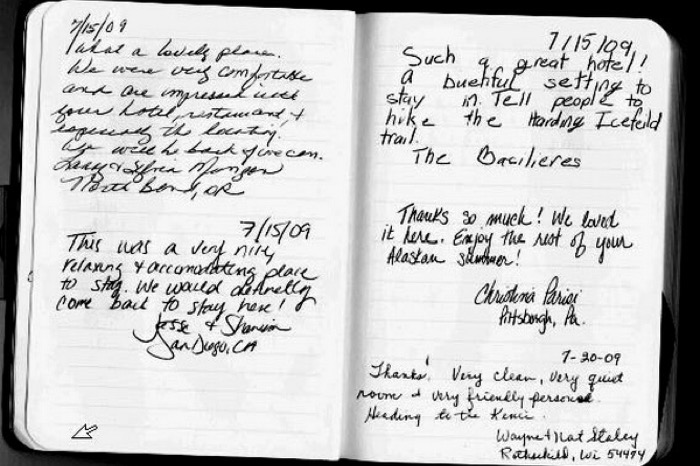 7/15/09
What a lovely place.
We were very comfortable
and are impressed with
your hotel, restaurant, +
especially the location.
We will be back if we can.
Morgan
North Bend, OR
7/15/09
This was a very nice,
relaxing & accomodating place
to stay. We would definetly
come back to stay here!
Jesse & Shannon
San Diego, CA
7/15/09
Such a great hotel!
A buetiful setting to
stay in. Tell people to
hike the Harding Icefeild
trail.
The Basilieres
Thanks so much! We loved
it here. Enjoy the rest of your
Alaskan summer!
Christina Parisi
Pittsburgh, Pa.
7-20-09
Thanks! Very clean, very quiet
room & very friendly personel.
Heading to the Kenai.
Wayne & Nat Staley
Rothschild, Wi 54474